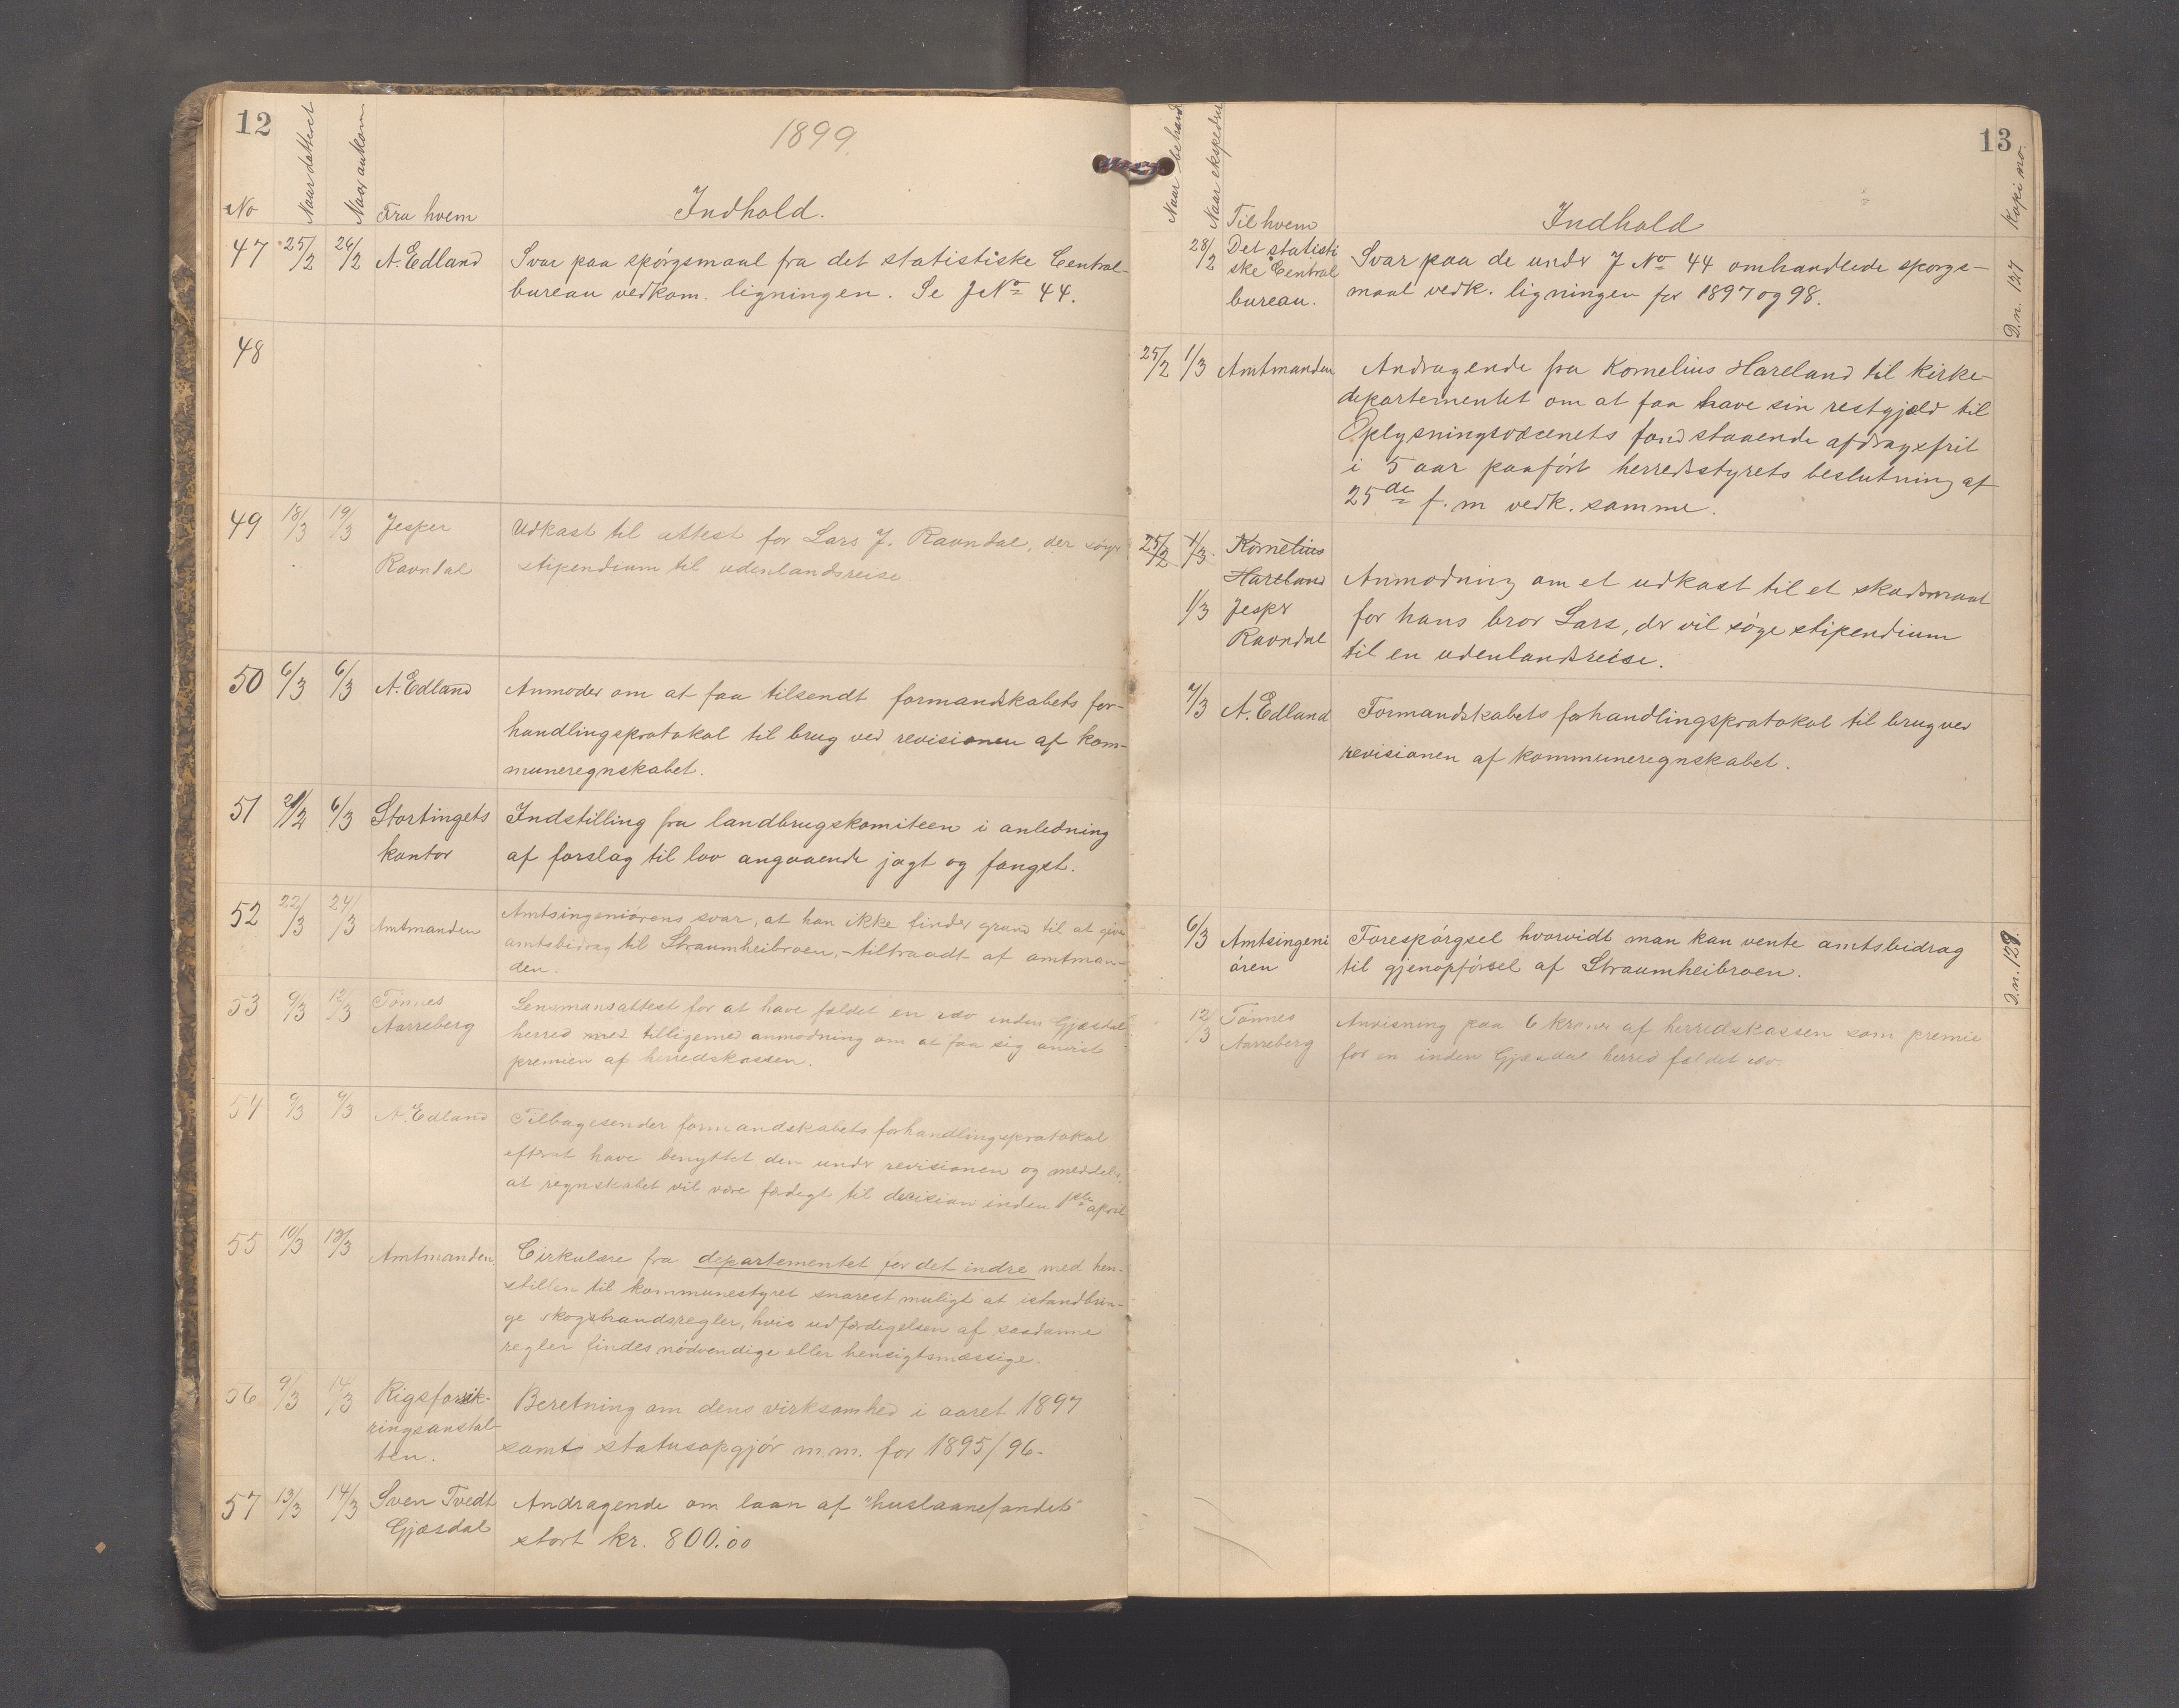 12
1899.
No
Naar datteret
Naar ankom
Fra hvem
Indhold.
47 25/2 26/2 A. Edland Svar paa spórgsmaal fra det statistiske Central-
bureau vedkom. ligningen. Se J No 44.
48
49 18/3 19/3 Jesper Udkast til attest for Lars J. Ravndal, der søger
Ravndal stipendium til udenlandsreise
50 6/3 6/3 A. Edland Anmoder om at faa tilsendt formandskabets for-
handlingsprotokol til brug ved revisionen af kom-
muneregnskabet.
51 21/2 6/3 Stortingets Indstilling fra landbrugskomiteen i anledning
kontor af forslag til lov angaaende jagt og fangst.
52 22/3 24/3 Amtmanden Amtsingeniórens svar, at han ikke finder grund til at give
amtsbidrag til Straumheibroen, - tiltraadt af amtman-
den.
53 9/3 12/3 Tónnes Lensmansattest for at have fældet en ræv inden Gjæsdal
Aarreberg herred med tilligemed anmodning om at faa sig anvist
premien af herredskassen.
54 9/3 9/3 A. Edland Tilbagesender formandskabets forhandlingsprotokol
efterat have benyttet den under revisionen og meddeler,
at regnskabet vil være færdigt til decision inden 1ste april
55 10/3 13/3 Amtmanden Cirkulære fra departementet for det indre med hen-
stillen til kommunestyret snarest muligt at istandbrin-
ge skogsbrandsregler, hvis udfærdigelsen af saadanne
regler findes nódvendige eller hensigtsmæssige.
56 9/3 14/3 Rigsforsik- Beretning om dens virksomhed i aaret 1897
ringsanstal- samt statusopgjór m.m. for 1895/96-
ten.
57 13/3 14/3 Sven Tvedt Andragende om laan af "huslaanefondet"
Gjæsdal stort kr. 800.00
13
Naar behand
Naar ekspederet
Til hvem
Indhold
Kopi no.
28/2 Det statisti Svar paa de under J No 44 omhandlede sporgs-
ske Central maal vedk. ligningen for 1897 og 98.
bureau.
D.n. 127
25/2 1/3 Amtmanden Andragende fra Kornelius Hareland til kirke-
departementet om at faa have sin restgjæld til
Oplysningsvæsenets fond staaende afdragsfrit
i 5 aar paafórt herredsstyrets beslutning af
25de f. m vedk. samme.
25/2 1/3. Kornelius
Hareland Anmodning om et udkast til et skudsmaal
1/3 Jesper for hans bror Lars, der vil søge stipendium
Ravndal til en udenlandsreise.
7/3 A. Edland Formandskabets forhandlingsprotokol til brug ved
revisionen af kommuneregnskabet.
6/3 Amtsingeni Forespórgsel hvorvidt man kan vente amtsbidrag
óren til gjenopfórsel af Straumheibroen.
D.n. 129.
12/3 Tónnes Anvisning paa 6 kroner af herredskassen som premie
Aarreberg for en inden Gjæsdal herred fældet ræv.